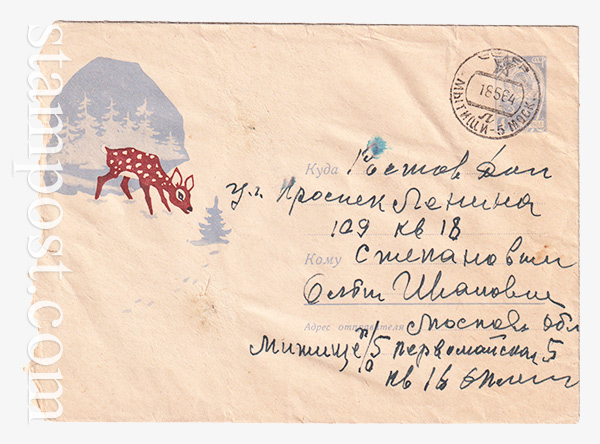 stampost.com
СССР
18564
Л
МЫТИЩИ-5 МОСК.
Куда Ростов Дон
ул. Проспек Ленина
109 кв 18
Кому Степановой
Ивановне
Адрес отправителя Москов обл
Митище п/о 5 первомайская 5
кв 16